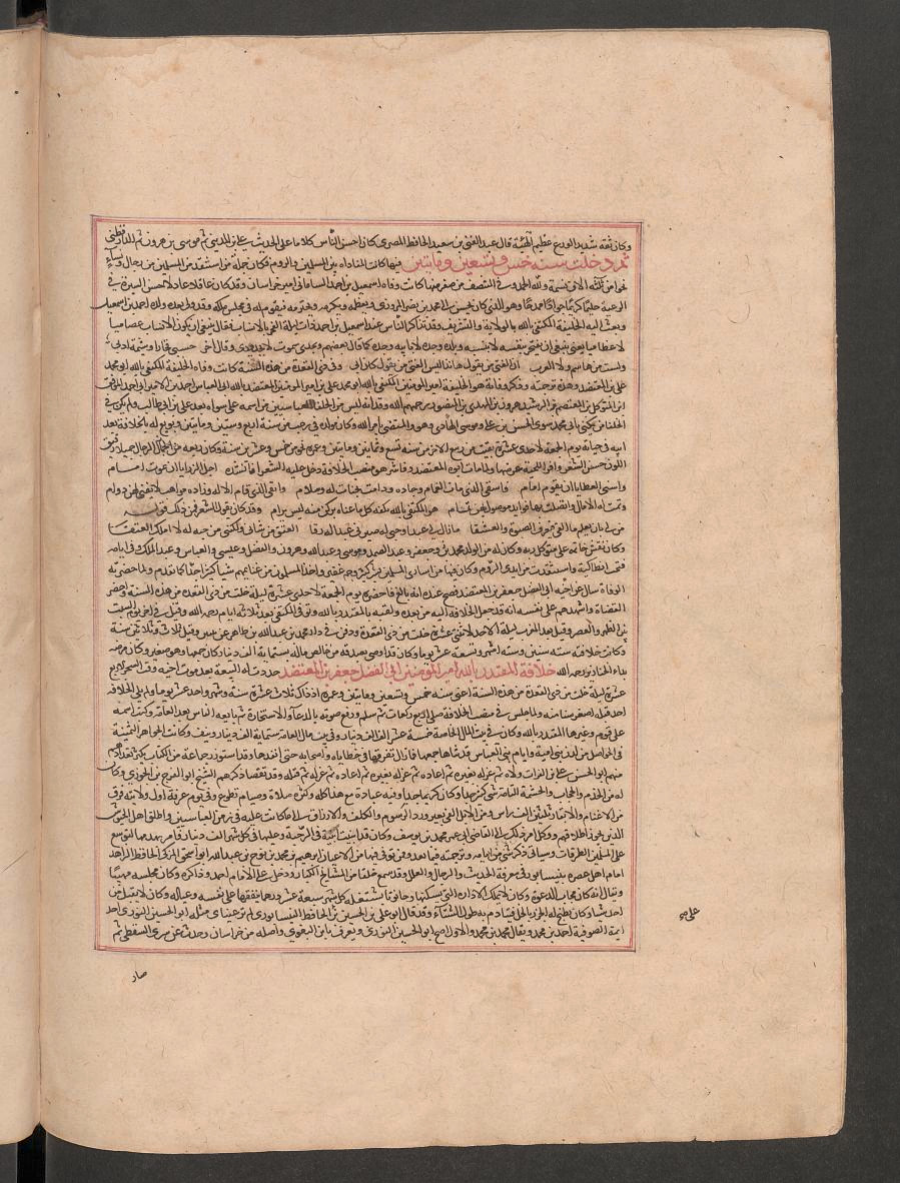 وكان ثقة شديد الورع عظيم الهيبة قال عبد الغني بن سعيد الحافظ المصري كان احسن الناس كلاما على الحديث علي بن المديني ثم موسى بن هرون ثم الدارقطني
ثم دخلت سنة خمس وتسعين ومايتين فيها كانت المفاداة بين المسلمين والروم فكان جملة من استنقذ من المسلمين من رجال ونساء
نحوا من ثلثة الاف نسمة ولله الحمد وفي المنتصف من صفر منها كانت وفاة اسمعيل بن احمد الساماني امير خراسان وقد كان عاقلا عادلا حسن السيرة في
الرعية حليما كريما وهو الذي كان يحسن الى محمد بن نصر المروزي ويعظمه ويكرمه ويحترمه فيقوم له في مجلس ملكه وولي بعده ولده احمد بن اسمعيل
وبعث اليه الخليفة المكتفي بالله بالولاية والتشريف وقد تذاكر الناس عند اسمعيل بن احمد ذات ليلة الفخر بالانساب فقال ينبغي ان يكون الانسان عصاميا
لا عظاميا يعني ينبغي ان يفتخر بنفسه لا بنسبه وبلده وجده كما قال بعضهم وبجدي سموت لا بجدودي وقال اخر حسبي فخارا وشيمة ادبي
ولست من هاشم ولا العرب ان الفتى من يقول ها انا ذا ليس الفتى من يقول كان ابي وفي ذي القعدة من هذه السنة كانت وفاة الخليفة المكتفي بالله ابو محمد
علي بن المعتضد وهذه ترجمته وذكر وفاته هو الخليفة امير المومنين المكتفي بالله ابو محمد علي بن امير المومنين المعتضد بالله ابي العباس احمد بن الامير ابي احمد الموفق
ابن المتوكل بن المعتصم بن الرشيد هرون بن المهدي بن المنصور رحمهم الله وقد انه ليس من الخلفاء العباسيين من اسمه علي سواه بعد علي بن ابي طالب وليس في
الخلفاء من يكنى بابي محمد سوى الحسن بن علي وموسى الهادي وهو المستضي بامر الله وكان مولده في رجب من سنة اربع وستين ومايتين وبويع له بالخلافة بعد
ابيه في حياته يوم الجمعة لاحدى عشرة بقيت من ربيع الاخر من سنة تسع وثمانين ومايتين وعمره نحو من خمس وعشرين سنة وكان ربعة من الرجال جميلا رقيق
اللون حسن الشعر وافر اللحية عريضها ولما مات ابوه المعتضد وباشر هو منصب الخلافة دخل عليه الشعرا فانشده اجل الرزايا ان يموت امام
واسنى العطايا ان يقوم امام فاسقى الذي مات الغمام وجاده ودامت تحيات له وسلام وابقى الذي قام الاله وزاده مواهب لا يفنى لهن دوام
وتمت له الامال واتصلت بها فوايد موصول بهن تمام هو المكتفي بالله يكفيه كل ما عناه بركن منه ليس يرام وقد كان يقول الشعر فمن ذلك قوله
من لي بان يعلم ما القى فيعرف الصبوة والعشقا ما زال لي عبدا وحبي له صيرني عبدا له رقا العتق من شاني ولكنني من حبه لا املك العتقا
وكان نقش خاتمه علي متوكل على ربه وكان له من الولد محمد وجعفر وعبد الصمد وموسى وعبد الله وهرون والفضل وعيسى والعباس وعبد الملك وفي ايامه
فتحت انطاكية واستنقذت من ايدي الروم وكان فيها من اسارى المسلمين بشر كثير وجم غفير واخذ المسلمون من غنايمهم شيا كثيرا جدا كما تقدم ولما حضرته
الوفاة سال عن اخيه ابي الفضل جعفر بن المعتضد فصح عنده انه بالغ فاحضره يوم الجمعة لاحدى عشرة ليلة خلت من ذي القعدة من هذه السنة واحضر
القضاة واشهدهم على نفسه انه قد جعل الخلافة اليه من بعده ولقبه بالمقتدر بالله وتوفي المكتفي بعد ثلاثة ايام رحمه الله وقيل في اخر يوم السبت
بين الظهر والعصر وقيل بعد المغرب ليلة الاحد لاثنتي عشرة خلت من ذي القعدة ودفن في دار محمد بن عبد الله بن طاهر عن وقيل ثلاث وثلاثين سنة
وكانت خلافته ستة سنين وستة اشهر وتسعة عشر يوما وكان قد اوصى بصدقة من خالص ماله ستماية الف دينار كان جمعها وهو صغير وكان مرضه
بداء الخنازير رحمه الله خلافة المقتدر بالله امير المومنين ابي الفضل جعفر بن المعتضد جددت له البيعة بعد موت اخيه وقت السحر لاربع
عشرة ليلة خلت من ذي القعدة من هذه السنة اعني سنة خمس وتسعين ومايتين وعمره اذ ذاك ثلاث عشرة سنة وشهر واحد وعشر يوما ولم يل الخلافة
احد قبله اصغر سنا منه ولما جلس في منصب الخلافة صلى اربع ركعات ثم سلم ورفع صوته بالدعاء والاستخارة ثم بايعه الناس بيعة العامة وكتب اسمه
على وغيرها المقتدر بالله وكان في بيت المال الخاصة خمسة عشر الف الف دينار وفي بيت مال العامة ستماية الف دينار ونيف وكانت الجواهر الثمينة
في الحواصل من لدن بني امية وايام بني العباس قد تناهى جمعها فما زال يفرقها في حظاياه واصحابه حتى انفدها وقد استوزر جماعة من الكتاب يكثر تعدادهم
منهم ابو الحسن علي بن الفرات ولاه ثم عزله بغيره ثم اعاده ثم عزله بغيره ثم اعاده ثم عزله ثم قتله وقد تقصا ذكرهم الشيخ ابو الفرج بن الجوزي وكان
له من الخدم والحجاب والحشمة التامة شي كثير جدا وكان كريما جدا وفيه عبادة مع هذا كله وكثرة صلاة وصيام تطوع وفي يوم عرفة اول ولايته فرق
من الاغنام والابقار ثلثين الف راس ومن الابل الفي بعير ورد الرسوم والكلف والارزاق الى ما كانت عليه في زمن العباسيين واطلق اهل الحبوس
الذين يجوز اطلاقهم ووكل امر ذلك الى القاضي ابي عمر محمد بن يوسف وكان قد ابنية في الرحبة دخلها في كل شهر الف دينار فامر بهدمها ليوسع
على المسلمين الطرقات وسياتي ذكر شي من ايامه وترجمته فيما بعد وممن توفي فيها من الاعيان ابرهيم بن محمد بن نوح بن عبد الله ابو اسحق المزكى الحافظ الزاهد
امام اهل عصره بنيسابور في معرفة الحديث والرجال والعلل وقد سمع خلقا من المشايخ الكبار ودخل على الامام احمد وذاكره وكان مجلسه مهيبا
ويقال انه كان مجاب الدعوة وكان لا يملك الا داره التي يسكنها وحانوتا يستغله كل شهر سبعة عشر درهما ينفقها على نفسه وعياله وكان لا يقبل من
احد شيا وكان يطبخ له الجزر بالخل فيتادم به طول الشتاء وقد قال ابو علي بن الحسين الحافظ النيسابوري لم تر عيناي مثله ابو الحسين النوري احد
ايمة الصوفية احمد بن محمد ويقال محمد بن محمد والاول اصح ابو الحسين النوري ويعرف بابن البغوي واصله من خراسان وحدث عن سري السقطي ثم
صار